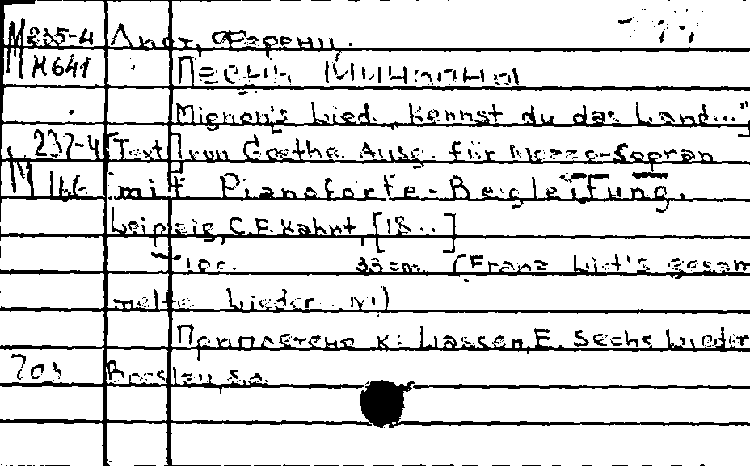 М 235-4 Лист, Ференц.
М 641 Песнь Миньоны
Mignon's Lied „Kennst du das Land..."
237-4 [Text] von Goethe. Ausg. für Mezzo-Sopran
М 166 mit Pianoforte-Begleitung.
Leipzig, C.F. Kahnt, [18..]
10 c. 33 cm. (Franz Liszt's gesam
melte Lieder. N1)
Приплетено к: Lassen, E. Sechs Lieder
703 Breslau, s.a.